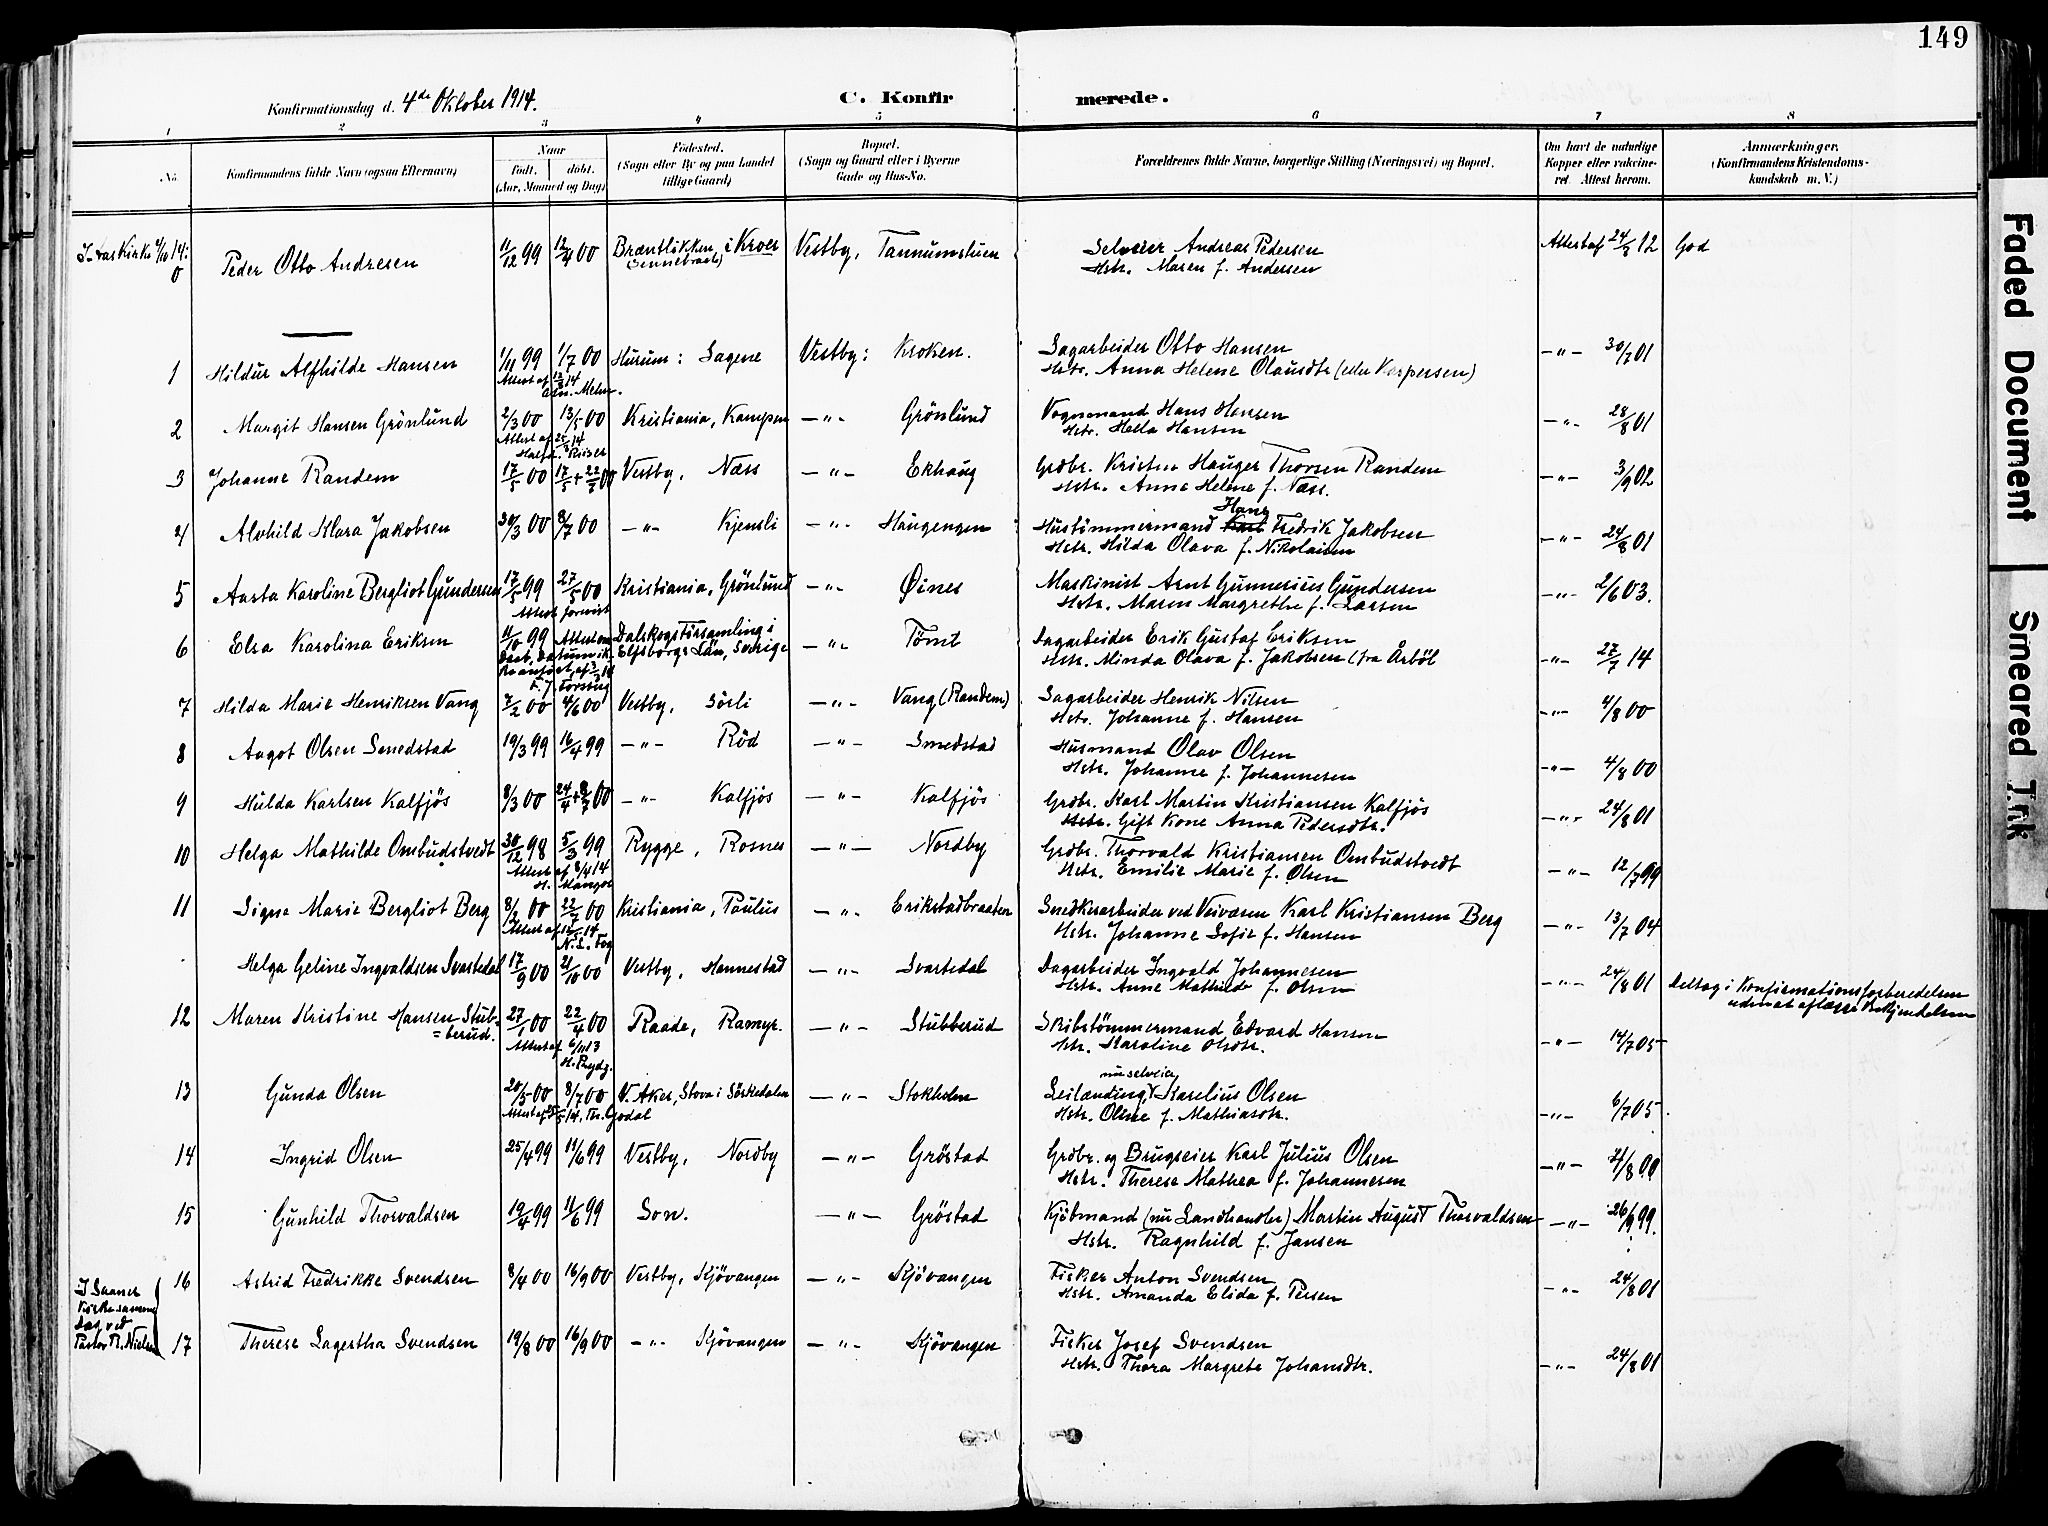 149
Konfirmationsdag d. 4de Oktober 1914.
C. Konfirmerede.
1 2 3 4 5 6 7 8
No.
Konfirmandens fulde Navn (ogsaa Efternavn)
Naar
født. døbt.
(Aar, Maaned og Dag)
Fødested.
(Sogn eller By og paa Landet
tillige Gaard)
Bopæl.
(Sogn og Gaard eller i Byerne
Gade og Hus-No.
Forældrenes fulde Navne, borgerlige Stilling (Næringsvei) og Bopæl.
Om havt de naturlige
Kopper eller vakcine-
ret. Attest herom.
Anmærkninger.
(Konfirmandens Kristendoms-
kundskab m. V.)
0 Peder Otto Andresen 11/12 99 12/4 00 i Kroer Vestby, Tannumstuen Selveier Andreas Pedersen Attest af 24/8 12 God
Hstr. Maren f. Andersen
1 Hildur Alfhilde Hansen 1/11 99 1/7 00 Hurum: Sagene Vestby: Kroken. Sagarbeider Otto Hansen -"- 30/7 01
Hstr. Anna Helene Olausdtr (eller Kaspersen)
2 Margit Hansen Grönlund 2/3 00 13/5 00 Kristiania, Kampen -"- Grönlund Vognmand Hans Hansen -"- 28/8 01
Hstr. Hella Hansen
3 Johanne Randem 17/5 00 Vestby, Næss -"- Ekhaug Grdbr. Kristen Hauger Thorsen Randem -"- 3/9 02
Hstr. Anne Helene f. Næss.
4 Alvhild Klara Jakobsen 30/3 00 8/7 00 -"- Kjensli -"- Haugengen Hustömmermand Hans Fredrik Jakobsen -"- 24/8 01
Hstr. Hilda Olava f. Nikolaisen
5 Aasta Karoline Bergliot Gundersen 17/5 99 27/5 00 Kristiania, Grönlund -"- Øines Maskinist Arnt Gunnerius Gundersen -"- 2/6 03.
Attest forevist Hstr. Maren Margrethe f. Larsen
6 Elsa Karolina Eriksen 11/10 99 Dalskogs Församling i Elfsborgs Län, Sverige -"- Tömt Dagarbeider Erik Gustaf Eriksen -"- 27/7 14
Hstr. Minda Olava f. Jakobsen (fra Årböl
7 Hilda Marie Henriksen Vang 7/2 00 4/6 00 Vestby, Sörli -"- Vang (Randem) Sagarbeider Henrik Nilsen -"- 4/8 00
Hstr. Johanne f. Hansen
8 Aagot Olsen Smedstad 19/3 99 16/4 99 -"- Röd -"- Smedstad Husmand Olav Olsen -"- 4/8 00
Hstr. Johanne f. Johannesen
9 Hulda Karlsen Kalfjös 8/3 00 -"- Kalfjös -"- Kalfjös Grdbr. Karl Martin Kristiansen Kalfjös -"- 24/8 01
Gift Kone Anna Pedersdtr.
10 Helga Mathilde Ombudstvedt 30/12 98 5/3 99 Rygge, Rosnes -"- Nordby Grdbr. Thorvald Kristiansen Ombudstvedt -"- 12/7 99
Attest af 8/4 14 Hstr. Emilie Marie f. Olsen
11 Signe Marie Bergliot Berg 8/2 00 22/7 00 Kristiania, Paulus -"- Erikstadbraaten Snedkerarbeider ved Veivæsen Karl Kristiansen Berg -"- 13/7 04
Hstr. Johanne Sofie f. Hansen
Helga Geline Ingvaldsen Svartedal 17/9 00 21/10 00 Vestby, Hannestad -"- Svartedal Dagarbeider Ingvald Johannesen -"- 24/8 01 Deltog i Konfirmationsforberedelsen
Hstr. Anne Mathilde f. Olsen uden at aflægge Bekjendelsen
12 Maren Kristine Hansen Stub- 27/1 00 22/4 00 Raade, Ramyr. -"- Stubberud Skibstömmermand Edvard Hansen -"- 14/7 05
=berud. Attest af 6/11 13 Hstr. Karoline Olsdtr.
nu selveier
13 Gunda Olsen 20/5 00 8/7 00 V. Aker, Stova i Sörkedalen -"- Stokholm Leilænding, Karelius Olsen -"- 6/7 05
Hstr. Oline f. Mathiasdtr.
14 Ingrid Olsen 25/4 99 11/6 99 Vestby, Nordby -"- Gröstad Grdbr. og Brugseier Karl Julius Olsen -"- 4/8 00
Hstr. Therese Mathea f. Johannesen
15 Gunhild Thorvaldsen 19/4 99 11/6 99 Son. -"- Gröstad Kjöbmand (nu Landhandler) Martin August Thorvaldsen -"- 26/9 99.
Hstr. Ragnhild f. Jansen
I Saaner
Kirke samme
Dag ved
Pastor R. Nielsen
16 Astrid Fredrikke Svendsen 8/4 00 16/9 00 Vestby, Kjövangen -"- Kjövangen Fisker Anton Svendsen -"- 24/8 01
Hstr. Amanda Elida f. Persen
17 Therese Lagertha Svendsen 19/8 00 16/9 00 -"- Kjövangen -"- Kjövangen Fisker Josef Svendsen -"- 24/8 01
Hstr. Thora Margrete Johansdtr.
Faded Document
Smeared Ink